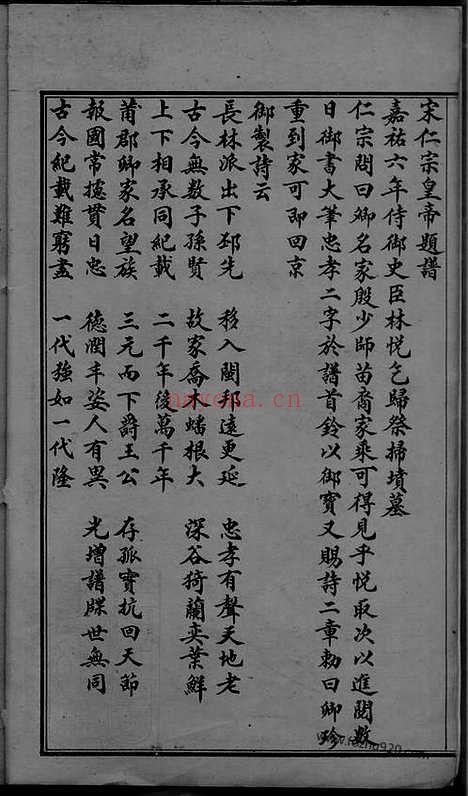 宋仁宗皇帝題譜
嘉祐六年侍御史臣林悅乞歸祭掃墳墓
仁宗問曰卿名家殷少師苗裔家乘可得見乎悅取次以進閱數
日御書大筆忠孝二字於譜首鈐以御寶又賜詩二章勅曰卿珍
重到家可即回京
御製詩云
長林派出下邳先 移入閩邦遠更延 忠孝有聲天地老
古今無數子孫賢 故家喬木蟠根大 深谷猗蘭奕葉鮮
上下相承同紀載 二千年後萬千年
莆郡卿家名望族 三元而下爵王公 存孤實抗回天節
報國常攄貫日忠 德潤丰姿人有異 光增譜牒世無同
古今紀載難窮盡 一代強如一代隆
nayona.cn